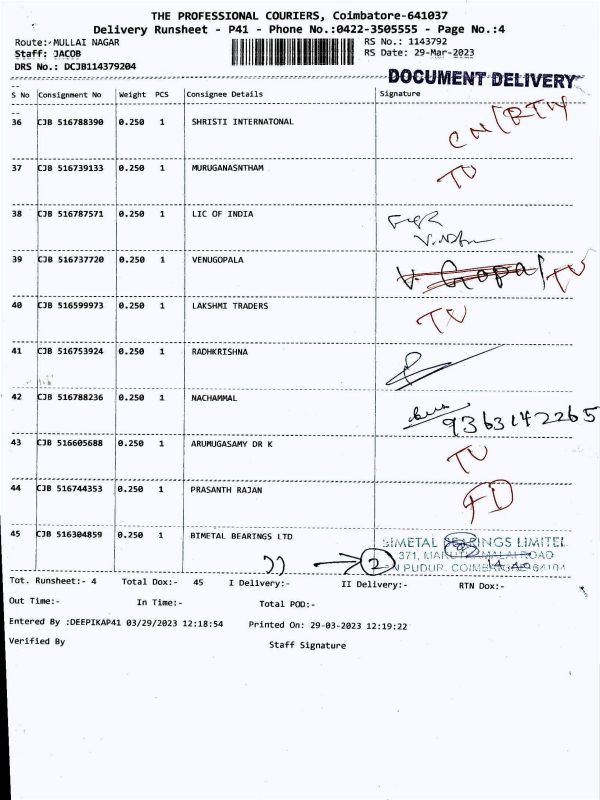 THE PROFESSIONAL COURIERS, Coimbatore-641037
Delivery Runsheet - P41 - Phone No.:0422-3505555 - Page No.:4
Route:-MULLAI NAGAR RS No.: 1143792
Staff: JACOB RS Date: 29-Mar-2023
DRS No.: DCJB114379204
DOCUMENT DELIVERY
S No Consignment No Weight PCS Consignee Details Signature
36 CJB 516788390 0.250 1 SHRISTI INTERNATONAL CN(RTN
37 CJB 516739133 0.250 1 MURUGANASNTHAM TU
38 CJB 516787571 0.250 1 LIC OF INDIA
39 CJB 516737720 0.250 1 VENUGOPALA V. Gopal TU
40 CJB 516599973 0.250 1 LAKSHMI TRADERS TU
41 CJB 516753924 0.250 1 RADHKRISHNA
42 CJB 516788236 0.250 1 NACHAMMAL 9363142265
43 CJB 516605688 0.250 1 ARUMUGASAMY DR K TU
44 CJB 516744353 0.250 1 PRASANTH RAJAN FD
45 CJB 516304859 0.250 1 BIMETAL BEARINGS LTD BIMETAL BEARINGS LIMITED
2
371, MARUTHAMALAI ROAD
N PUDUR. COIMBATORE 64104
Tot. Runsheet:- 4 Total Dox:- 45 I Delivery:- II Delivery:- RTN Dox:-
Out Time:- In Time:- Total POD:-
Entered By :DEEPIKAP41 03/29/2023 12:18:54 Printed On: 29-03-2023 12:19:22
Verified By Staff Signature